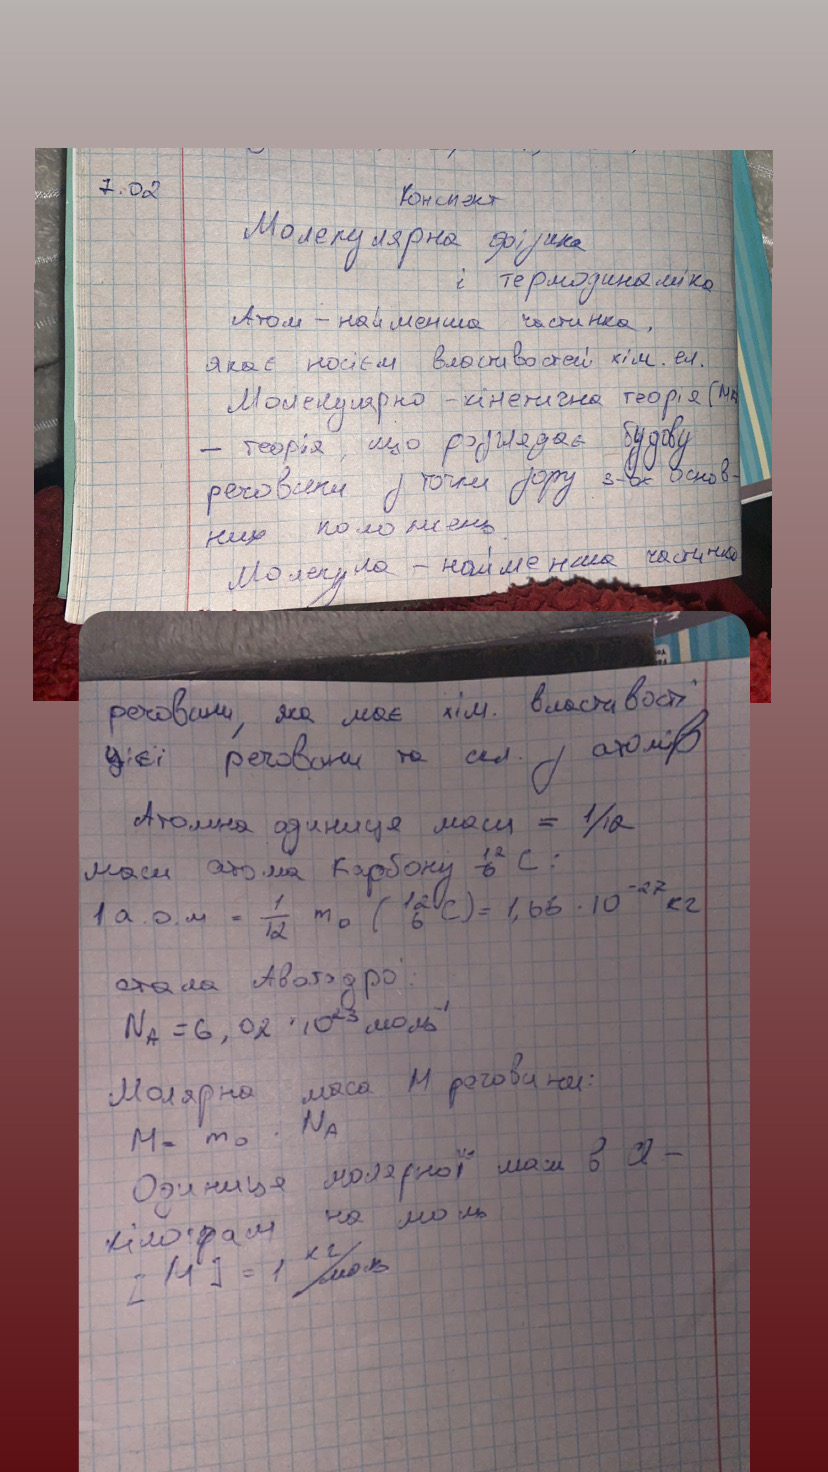 7.02
Конспект
Молекулярна фізика
і термодинаміка
Атом – найменша частинка,
яка є носієм властивостей хім. ел.
Молекулярно – кінетична теорія (МК
– теорія, що розглядає будову
речовини з точки зору 3-ох основ-
них положень.
Молекула – найменша частинка
речовини, яка має хім. властивості
цієї речовини та скл. з атомів
Атомна одиниця маси = 1/12
маси атома Карбону ¹²₆C:
1 а.о.м = 1/12 m₀ (¹²₆C) = 1,66 · 10⁻²⁷ кг
стала Авогадро:
Nᴀ = 6,02 · 10²³ моль⁻¹
Молярна маса М речовини:
М = m₀ · Nᴀ
Одиниця молярної маси в СІ –
кілограм на моль
[М] = 1 кг/моль